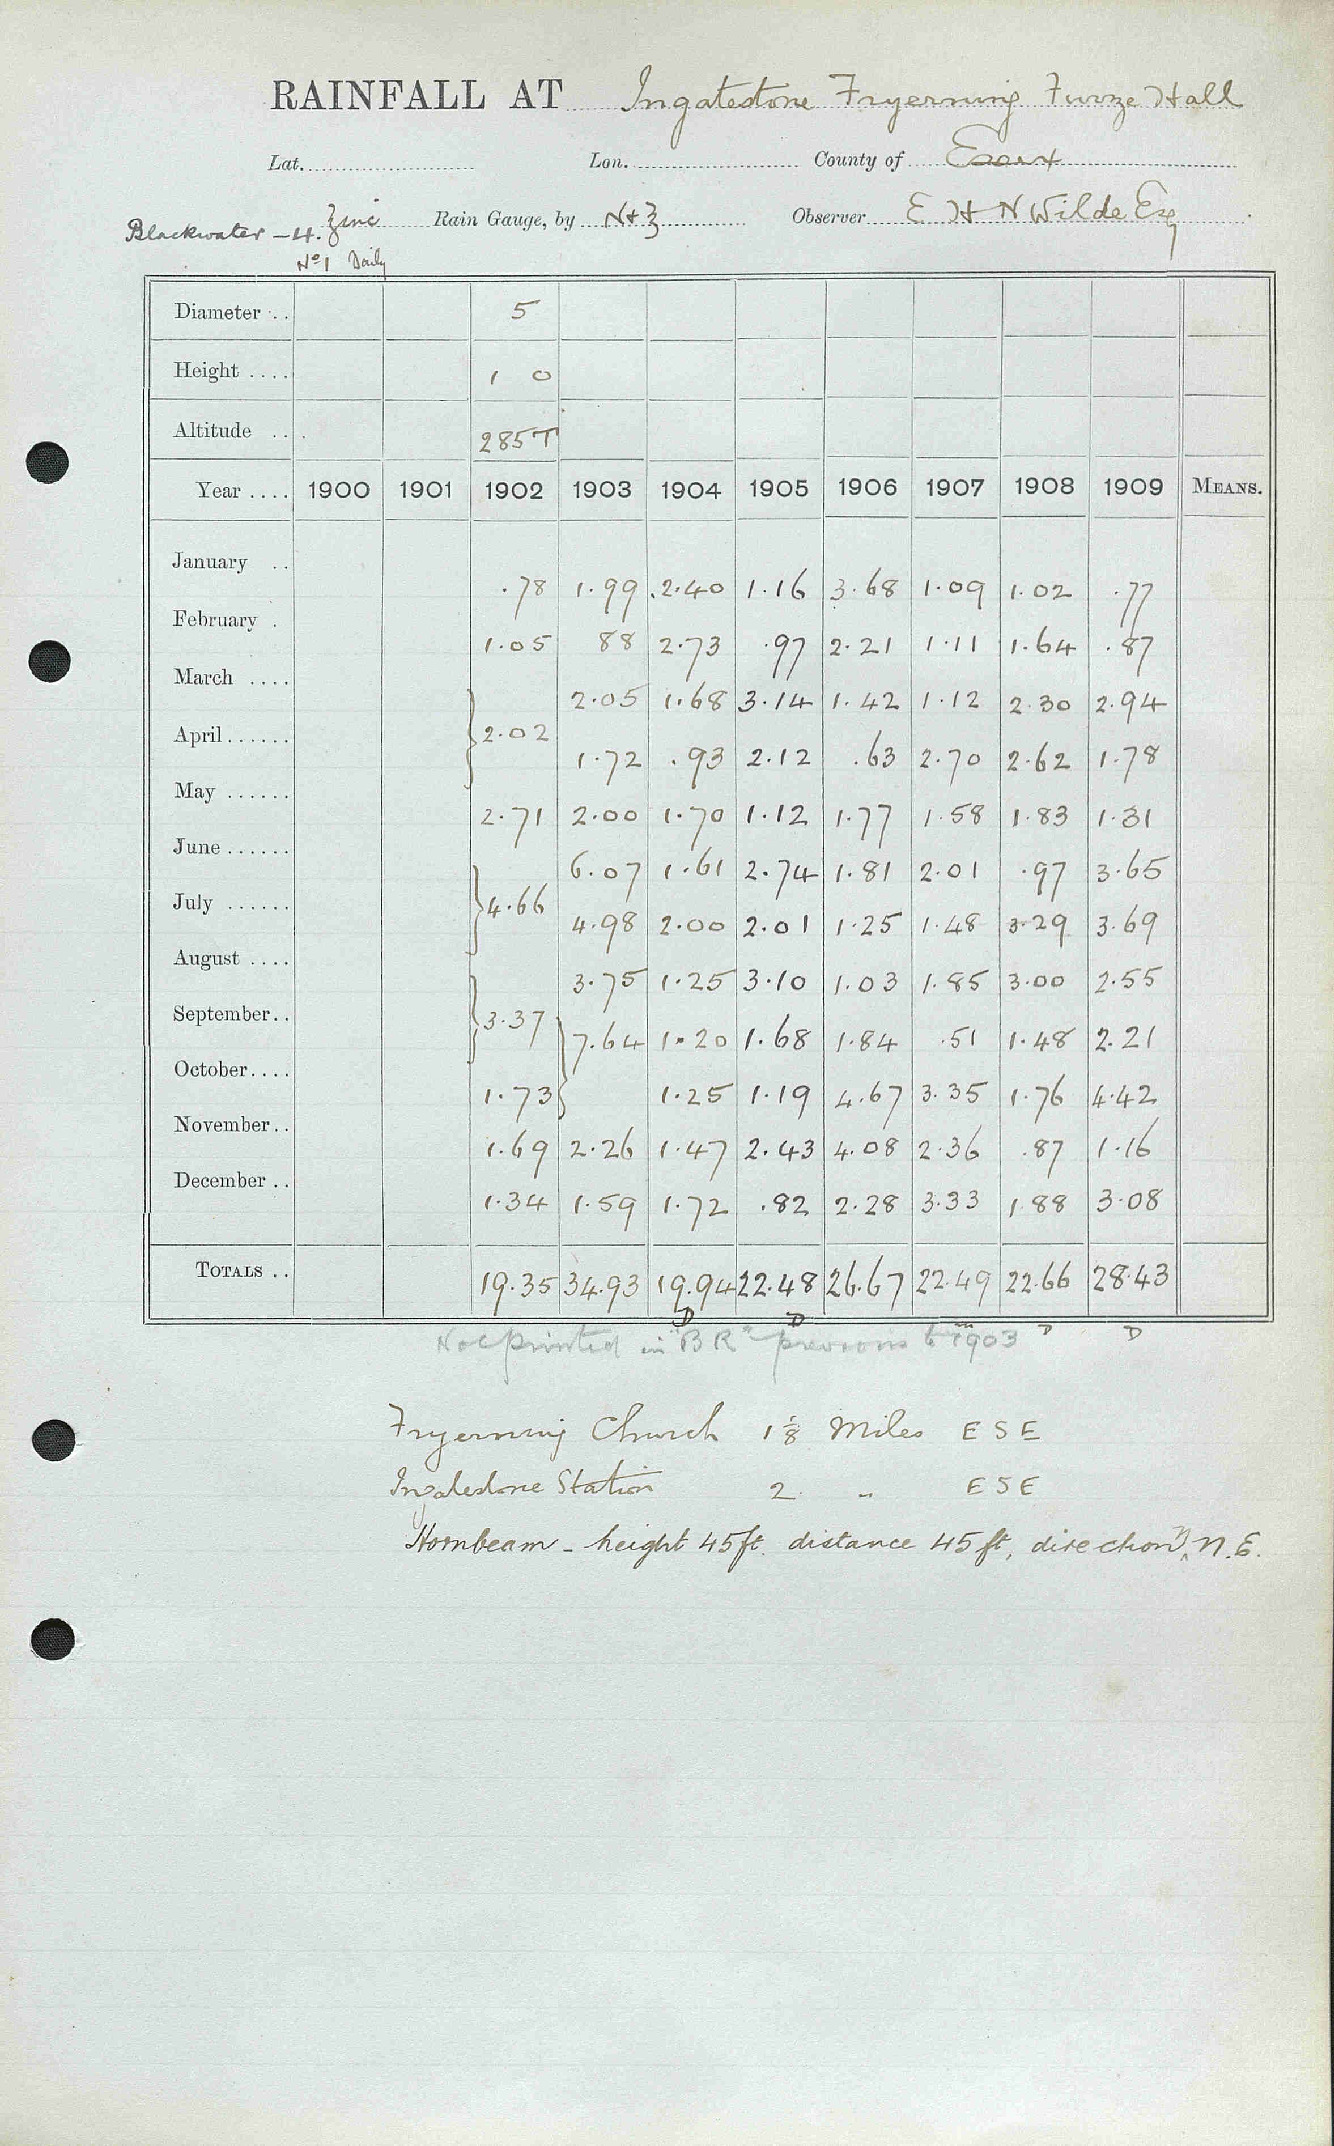 RAINFALL AT Ingatestone Fryerning Furze Hall
Lat. Lon. County of Essex
Blackwater - 4. Zinc Rain Gauge, by N&Z Observer E H N Wilde Esq
No 1 Daily
Diameter .. 5
Height .... 1 0
Altitude .. 285T
Year .... 1900 1901 1902 1903 1904 1905 1906 1907 1908 1909 MEANS.
January .. .78 1.99 2.40 1.16 3.68 1.09 1.02 .77
February . 1.05 88 2.73 .97 2.21 1.11 1.64 .87
March .... 2.05 1.68 3.14 1.42 1.12 2.30 2.94
April...... } 2.02 1.72 .93 2.12 .63 2.70 2.62 1.78
May ...... 2.71 2.00 1.70 1.12 1.77 1.58 1.83 1.31
June ...... 6.07 1.61 2.74 1.81 2.01 .97 3.65
July ...... } 4.66 4.98 2.00 2.01 1.25 1.48 3.29 3.69
August .... 3.75 1.25 3.10 1.03 1.85 3.00 2.55
September.. } 3.37 } 7.64 1.20 1.68 1.84 .51 1.48 2.21
October.... 1.73 1.25 1.19 4.67 3.35 1.76 4.42
November.. 1.69 2.26 1.47 2.43 4.08 2.36 .87 1.16
December .. 1.34 1.59 1.72 .82 2.28 3.33 1.88 3.08
TOTALS .. 19.35 34.93 19.94 22.48 26.67 22.49 22.66 28.43
D D D D
Not printed in "B R" previous to 1903
Fryerning Church 1 1/8 Miles E S E
Ingatestone Station 2 " E S E
Hornbeam - height 45 ft. distance 45 ft, direction N. E.